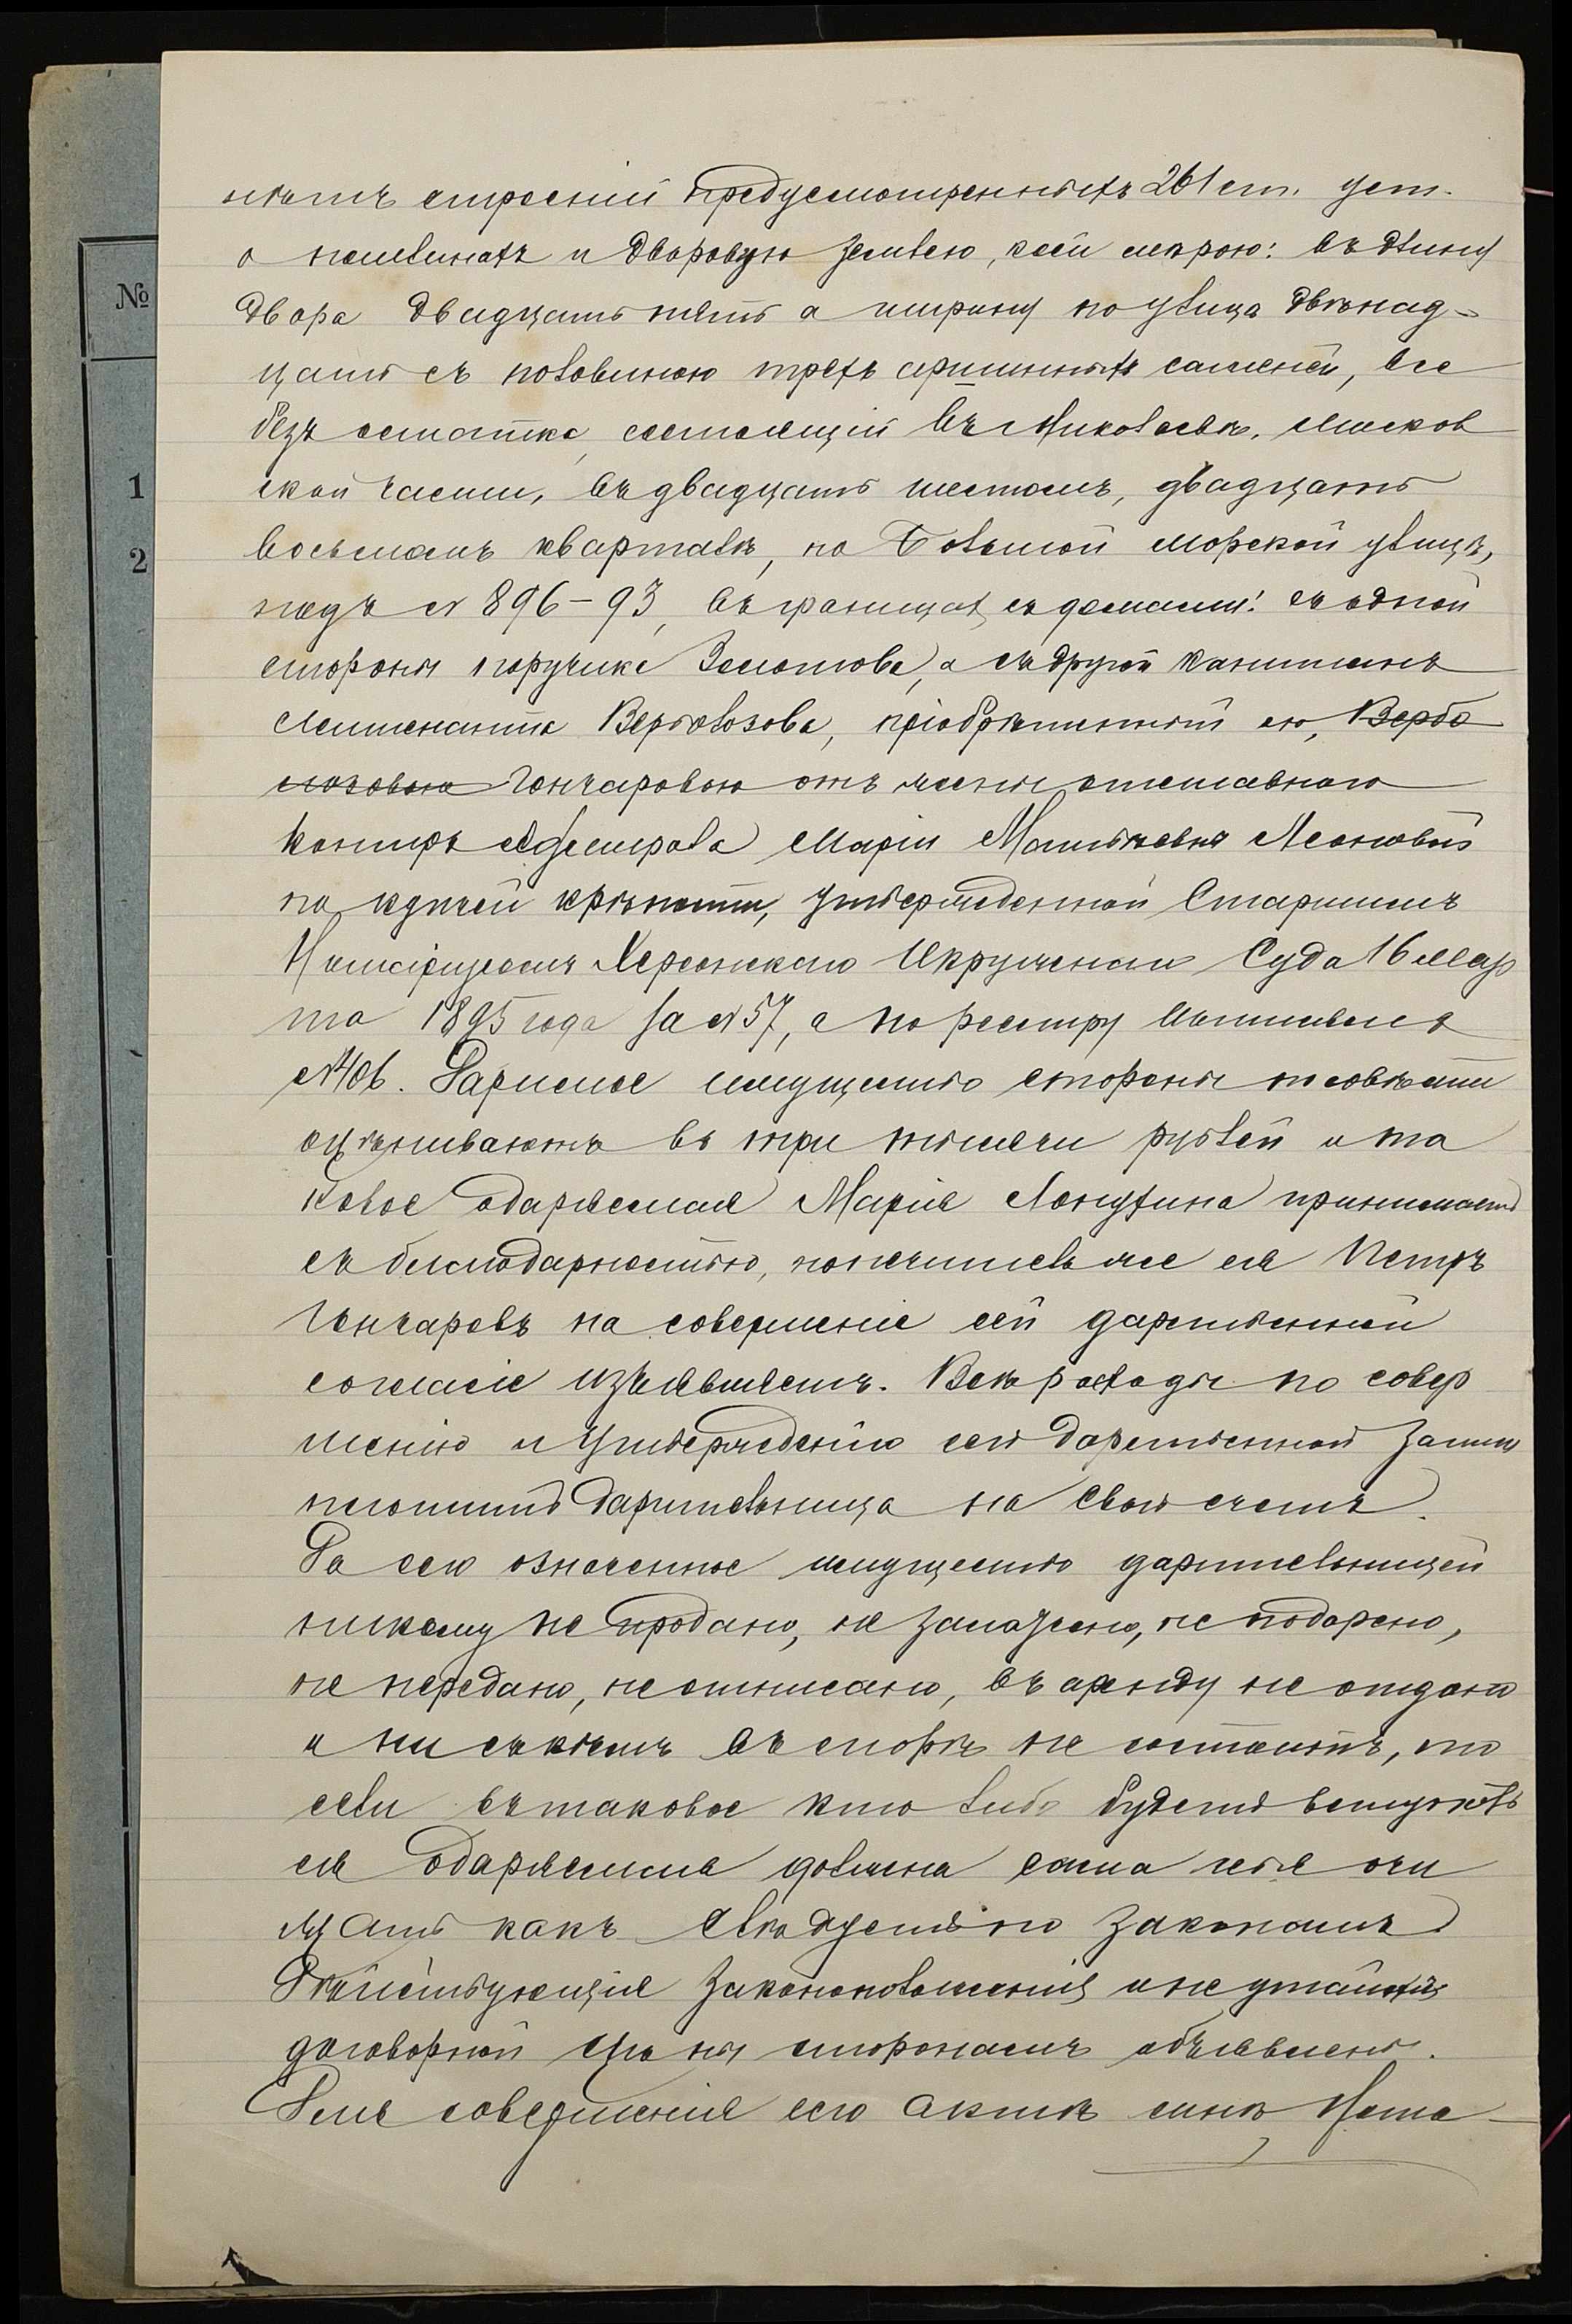 нѣтъ строеній предусмотренныхъ 261 ст. уст.
о пошлинахъ и дворовую землею, коей мѣрою: въ длину
двора двадцать пять а ширину по улицѣ двѣнад-
цать съ половиною трехъ аршинныхъ саженей, все
безъ остатка, состоящій въ Николаевѣ, Москов
ской части, въ двадцать шестомъ, двадцать
восьмомъ кварталѣ, на Большой морской улицѣ,
подъ № 896-93, въ границахъ съ домами: съ одной
стороны поручика Золотова, а съ другой капитанъ
Лейтенанта Верблюзова, пріобрѣтенный ею, Вербо
лозовою Гончаровою отъ жены отставного
Контръ Адмирала Маріи Матвѣевны Леоновой
по купчей крѣпости, утвержденной Старшимъ
Нотаріусомъ Херсонскаго Окружнаго Суда 16 мар
та 1895 года за № 57, а по реестру
№ 406. Даримое имущество стороны по совѣсти
оцѣниваютъ въ три тысячи рублей и та
ковое одаряемая Марія Лонгухина принимаетъ
съ благодарностью, попечитель же ея Петръ
Гончаровъ на совершеніе сей дарственной
согласіе изъявляетъ. Всѣ расходы по совер
шенію и утвержденію сей дарственной записи
платитъ дарительница на свой счетъ.
До сего означенное имущество дарительницей
никому не продано, не заложено, не подарено,
не передано, не отписано, въ аренду не отдано
и ни съ кѣмъ въ спорѣ не состоитъ, но
если въ таковое кто либо будетъ вступать
ся одаряемая должна сама себя очи
щать какъ слѣдуетъ по законамъ
Дѣйствующія законоположенія о не утайкѣ
договорной цѣны сторонамъ объявлены.
Для совершенія сего акта мнѣ Нота-